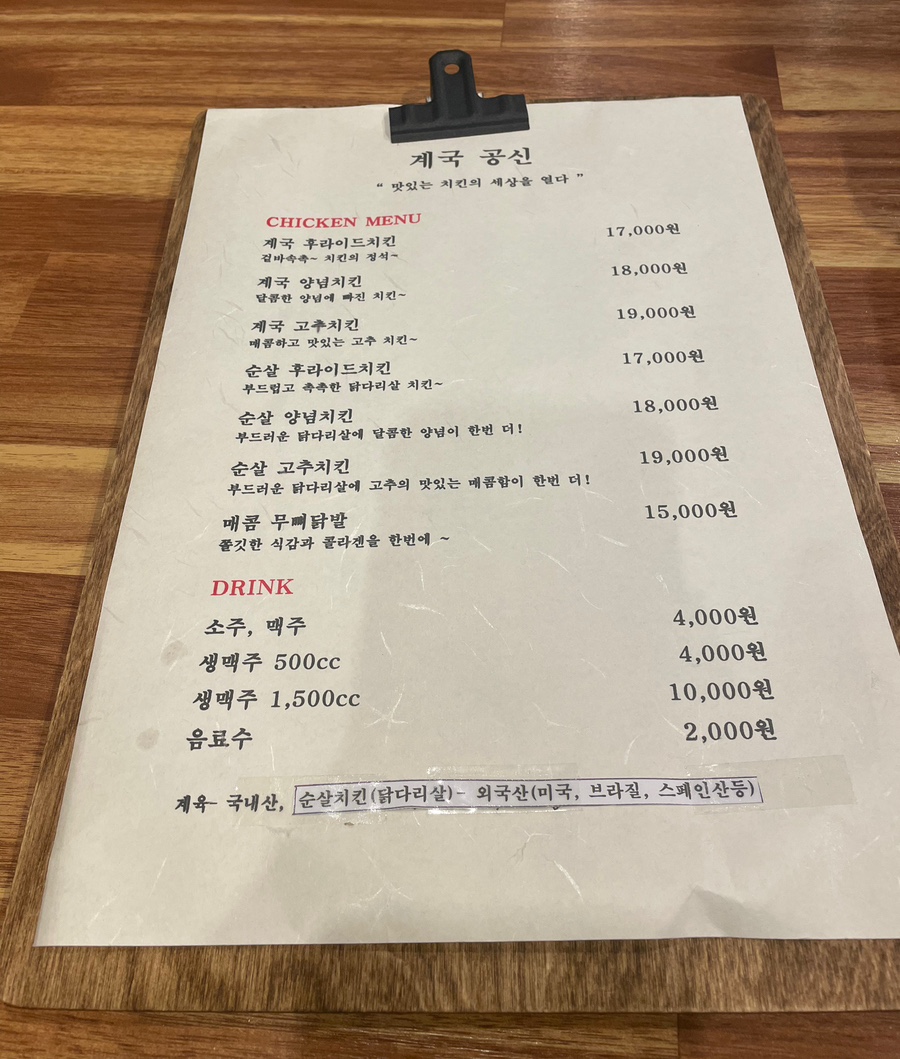 계국 공신
“ 맛있는 치킨의 세상을 열다 ”
CHICKEN MENU
계국 후라이드치킨 17,000원
겉바속촉~ 치킨의 정석~
계국 양념치킨 18,000원
달콤한 양념에 빠진 치킨~
계국 고추치킨 19,000원
매콤하고 맛있는 고추 치킨~
순살 후라이드치킨 17,000원
부드럽고 촉촉한 닭다리살 치킨~
순살 양념치킨 18,000원
부드러운 닭다리살에 달콤한 양념이 한번 더!
순살 고추치킨 19,000원
부드러운 닭다리살에 고추의 맛있는 매콤함이 한번 더!
매콤 무뼈닭발 15,000원
쫄깃한 식감과 콜라겐을 한번에 ~
DRINK
소주, 맥주 4,000원
생맥주 500cc 4,000원
생맥주 1,500cc 10,000원
음료수 2,000원
계육- 국내산, 순살치킨(닭다리살)- 외국산(미국, 브라질, 스페인산등)